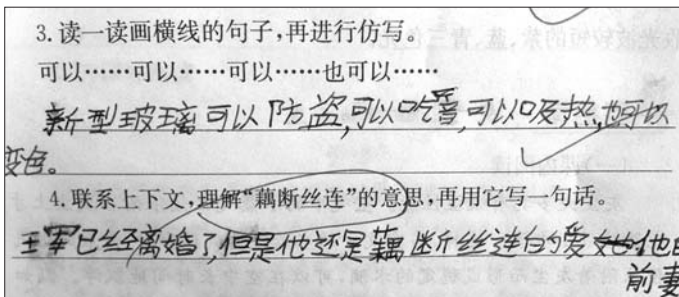 3. 读一读画横线的句子,再进行仿写。
可以……可以……可以……也可以……
新型玻璃可以防盗,可以吃噪,可以吸热,也可以
变色。
4. 联系上下文,理解“藕断丝连”的意思,再用它写一句话。
王军已经离婚了,但是他还是藕断丝连的爱他的
前妻